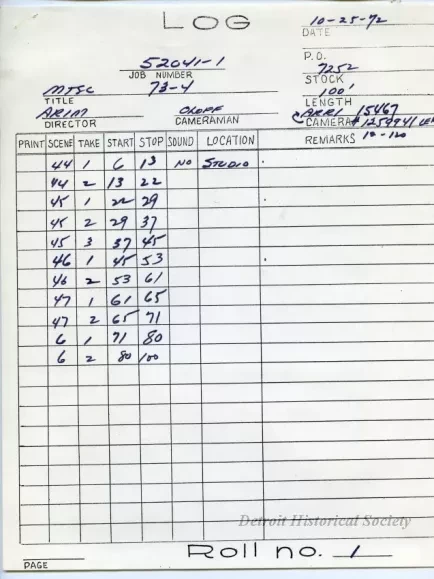 LOG
10-25-72
DATE
P.O.
52041-1
JOB NUMBER
7252
STOCK
MTSC 73-4
100'
TITLE
LENGTH
DIRECTOR CAMERAMAN
ARRI 15467
CAMERA #
PRINT SCENE TAKE START STOP SOUND LOCATION REMARKS 10-120
44 1 6 13 NO STUDIO
44 2 13 22
45 1 22 29
45 2 29 37
45 3 37 45
46 1 45 53
46 2 53 61
47 1 61 65
47 2 65 71
6 1 71 80
6 2 80 100
Detroit Historical Society
PAGE
Roll no. 1